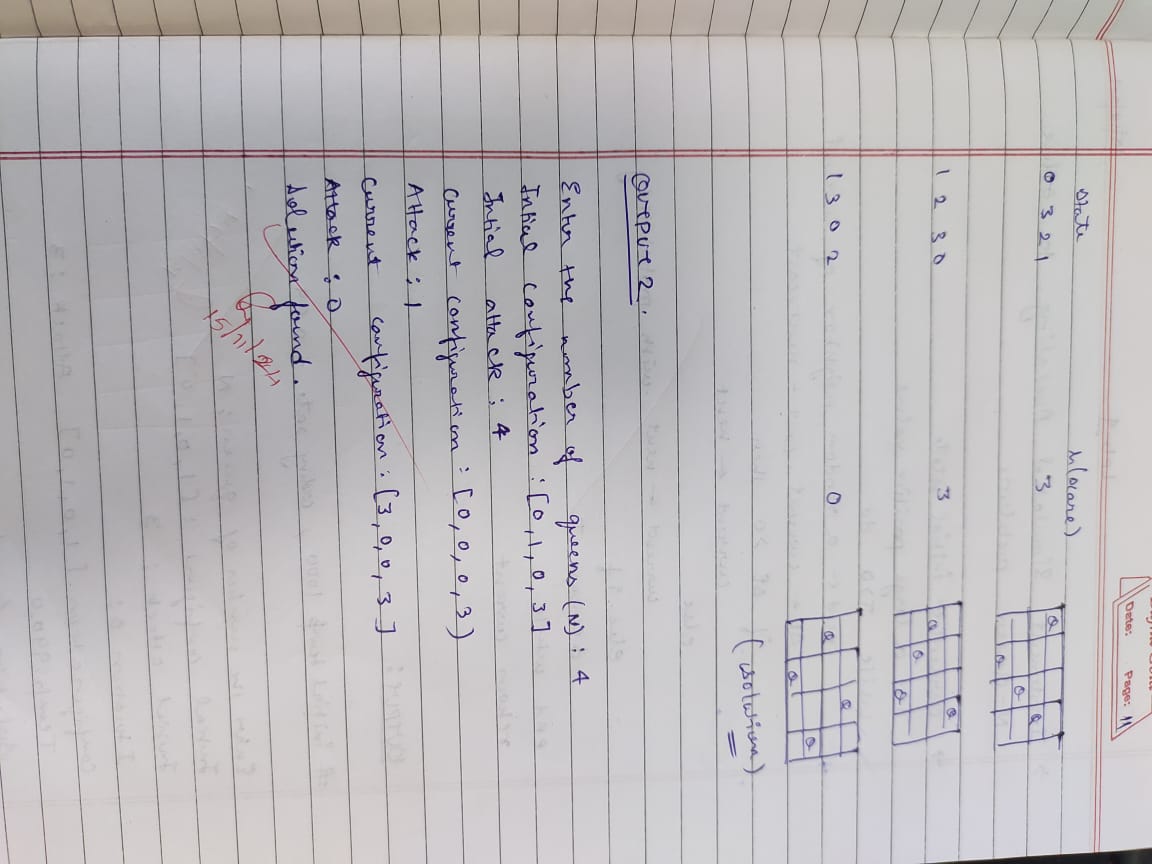 Date:
Page: 11
State h(scare)
0 3 2 1 3
Q
Q
Q
Q
1 2 3 0 3
Q
Q
Q
Q
1 3 0 2 0
Q
Q
Q
Q
(solution)
OUTPUT 2.
Enter the number of queens (N) : 4
Intial configuration : [0, 1, 0, 3]
Intial attack : 4
Current configuration : [0, 0, 0, 3)
Attack : 1
Current configuration : [3, 0, 0, 3]
Attack : 0
Solution found.
15/11/24